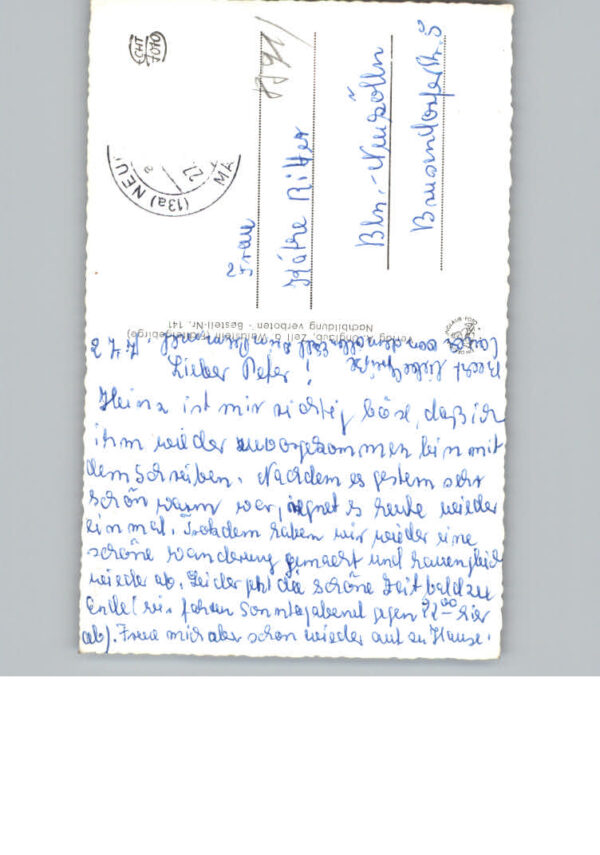 Lieber Peter!
Heinz ist mir richtig böse, daß ich
ihm wieder zuvorgekommen bin mit
dem Schreiben. Nachdem es gestern sehr
schön warm war, regnet es heute wieder
einmal. Trotzdem haben wir wieder eine
schöne Wanderung gemacht und hauen gleich
wieder ab. Leider geht die schöne Zeit bald zu
Ende (wir fahren Sonntagabend gegen 21⁰⁰ hier
ab). Freue mich aber schon wieder auf zu Hause.
Recht liebe Grüße
Verlag A. Zell a. Waldstein (Fichtelgebirge)
Nachbildung verboten - Bestell-Nr. 141
Frau
Käthe Ritter
Bln.-Neukölln
(13a) NEU
MA